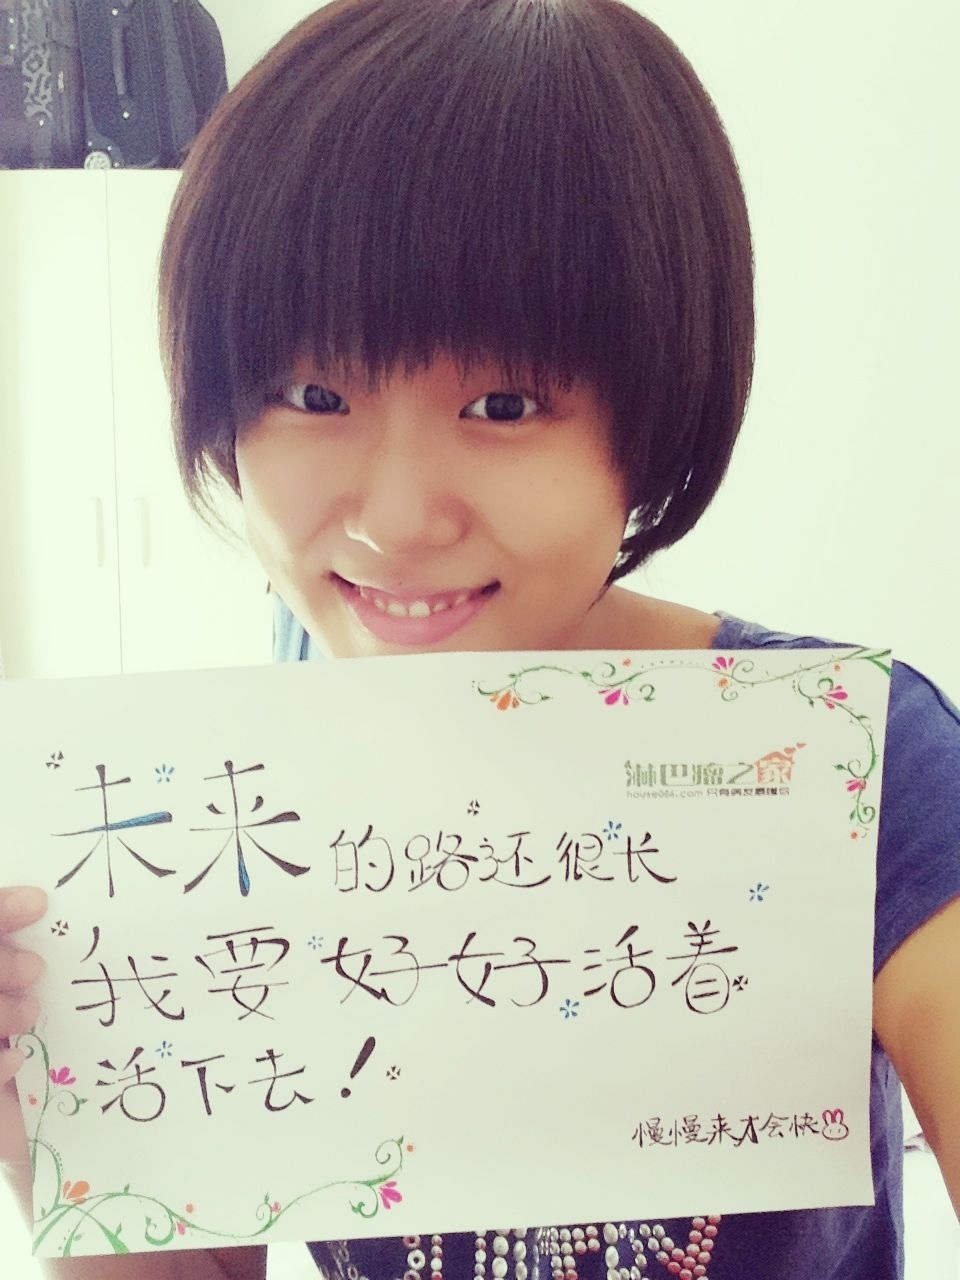 淋巴瘤之家
house086.com 只有病友最懂你
未来的路还很长
我要好好活着
活下去！
慢慢来才会快